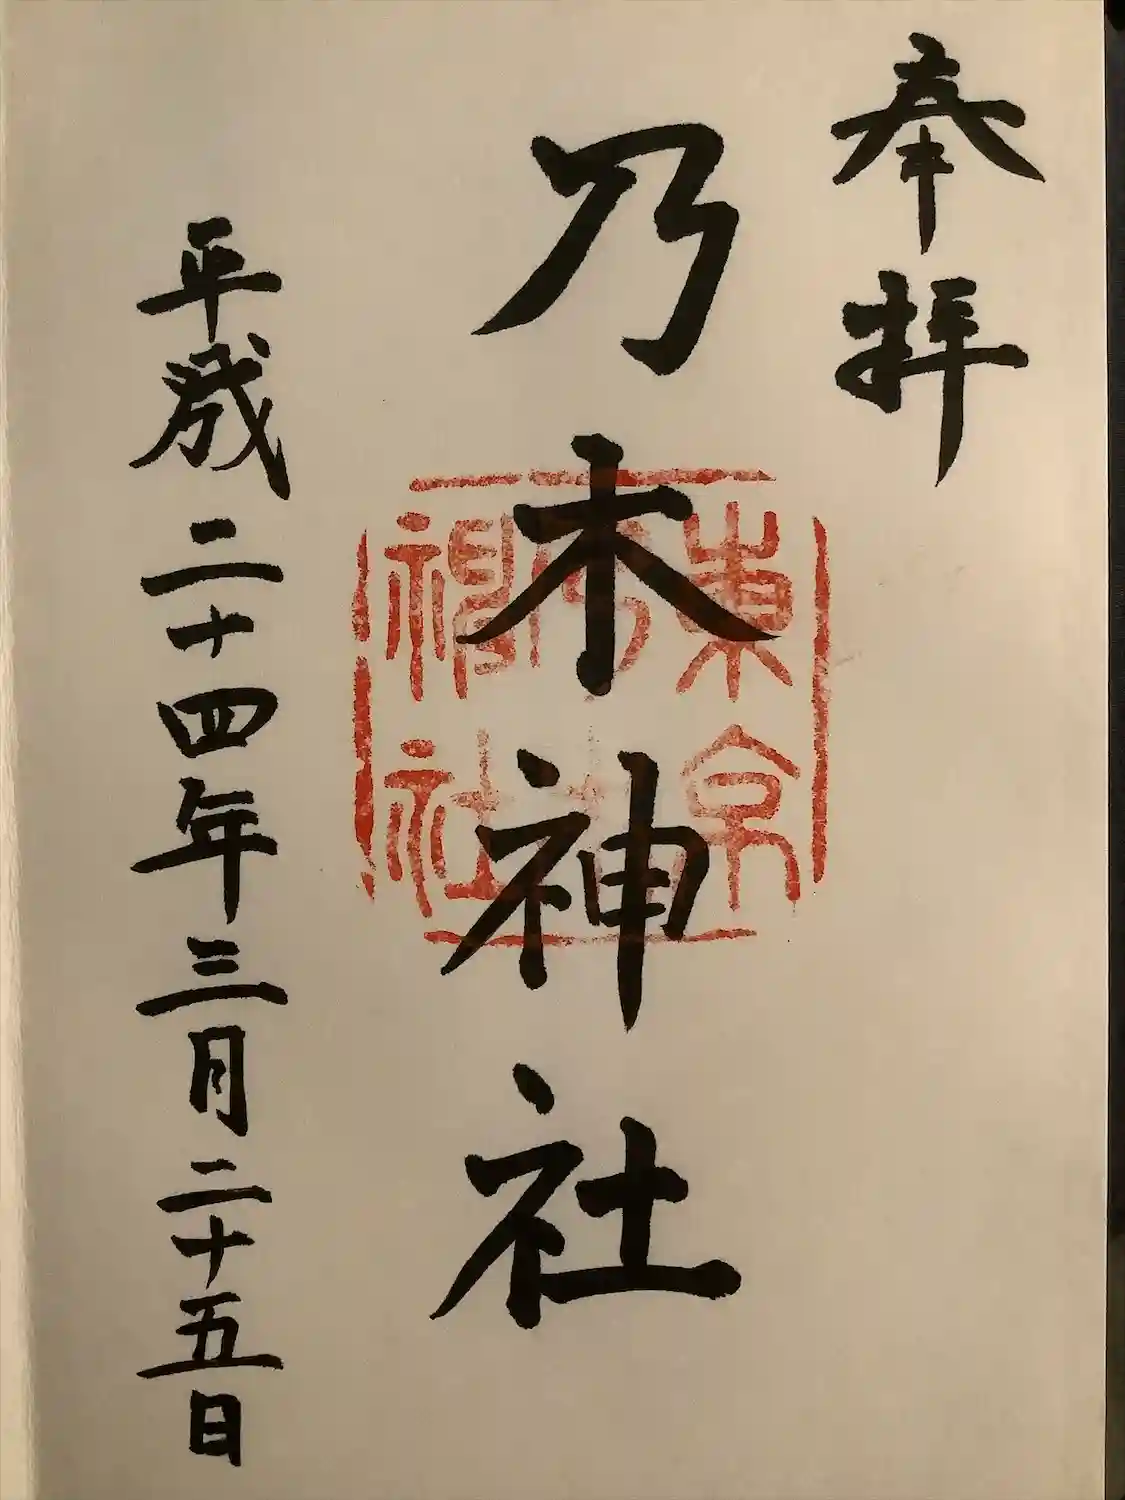 奉拝
乃木神社
東京
乃木
神社
平成二十四年三月二十五日